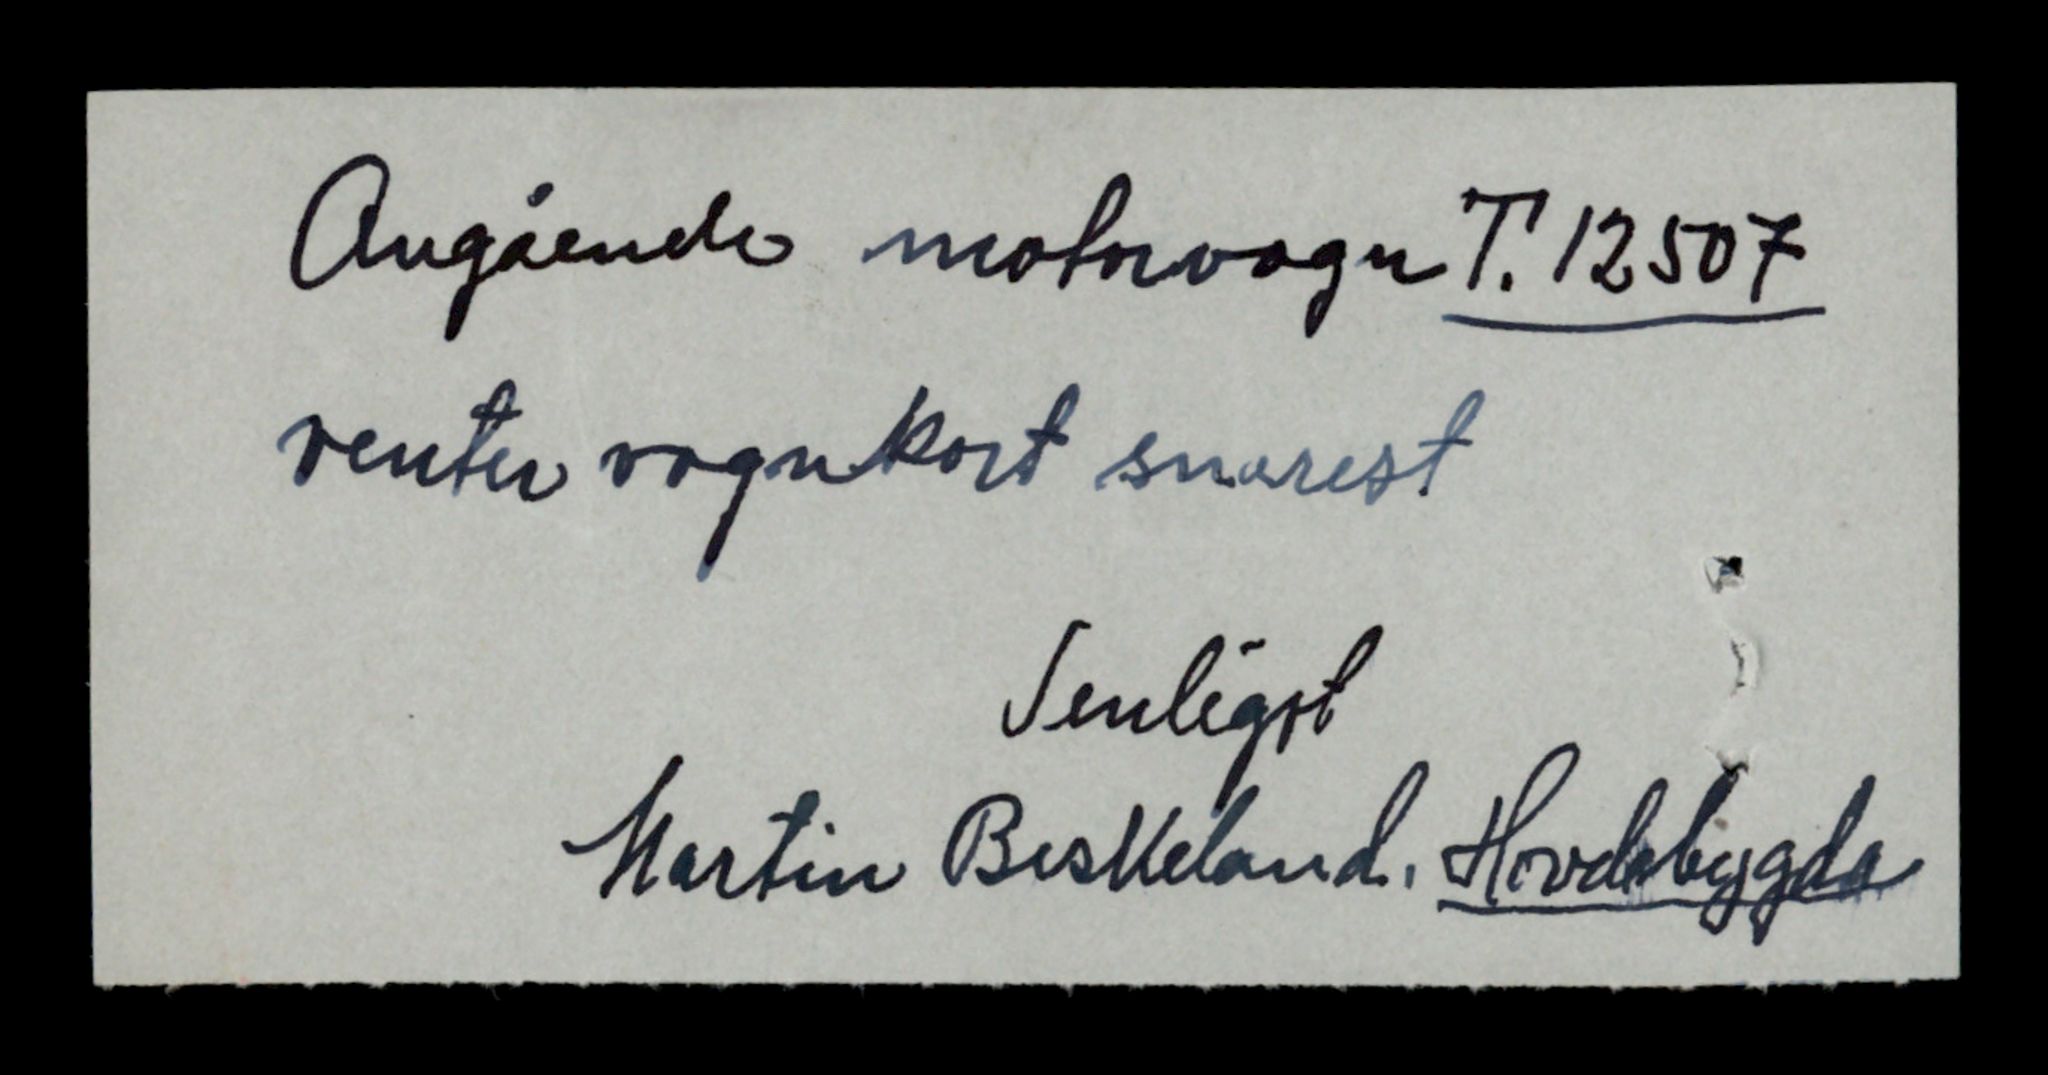 Angående motorvogn T. 12507
venter vognkort snarest
Venligst
Martin Beskeland. Hovdebygda